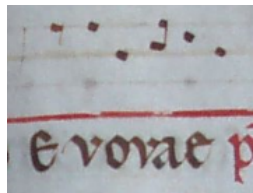 E vovae p̄